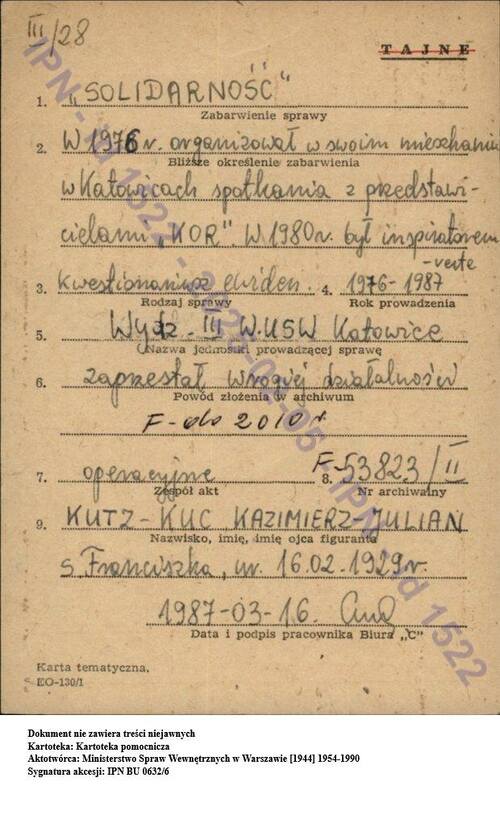 III/28
TAJNE
1. „SOLIDARNOŚĆ"
Zabarwienie sprawy
2. W 1976 r. organizował w swoim mieszkaniu
Bliższe określenie zabarwienia
w Katowicach spotkania z przedstawi-
cielami „KOR". W 1980 r. był inspiratorem
-verte
3. kwestionariusz ewiden. 4. 1976-1987
Rodzaj sprawy Rok prowadzenia
5. Wydz. III W.USW Katowice
(Nazwa jednostki prowadzącej sprawę
6. zaprzestał wrogiej działalności
Powód złożenia w archiwum
F-do 2010 r.
7. operacyjne 8. F-53823/II
Zespół akt Nr archiwalny
9. KUTZ-KUC KAZIMIERZ-JULIAN
Nazwisko, imię, imię ojca figuranta
s. Franciszka, ur. 16.02.1929r.
1987-03-16.
Data i podpis pracownika Biura „C"
Karta tematyczna.
EO-130/1
Dokument nie zawiera treści niejawnych
Kartoteka: Kartoteka pomocnicza
Aktotwórca: Ministerstwo Spraw Wewnętrznych w Warszawie [1944] 1954-1990
Sygnatura akcesji: IPN BU 0632/6